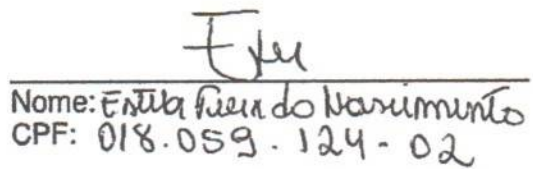 Nome: Estela do Nascimento
CPF: 018.059.124-02